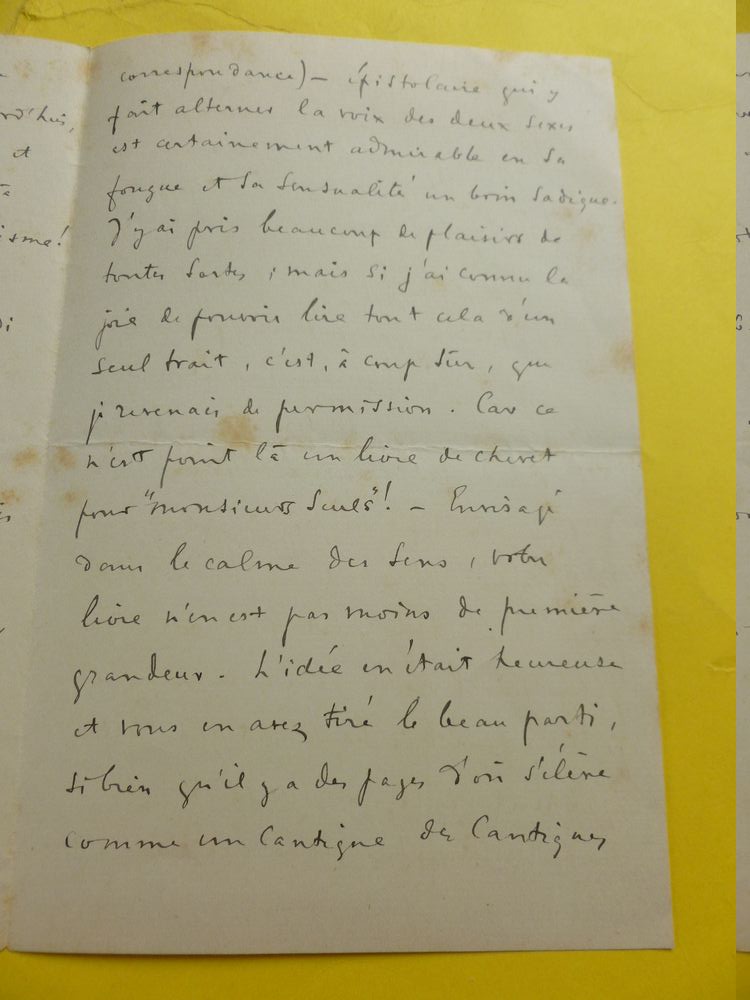 correspondance) — épistolaire qui y
fait alterner la voix des deux sexes
est certainement admirable en sa
fougue et sa sensualité un brin sadique.
J'y ai pris beaucoup de plaisirs de
toutes sortes ; mais si j'ai connu la
joie de pouvoir lire tout cela d'un
seul trait, c'est, à coup sûr, que
je revenais de permission. Car ce
n'est point là un livre de chevet
pour "monsieurs seuls"! — Envisagé
dans le calme des sens, votre
livre n'en est pas moins de première
grandeur. L'idée en était heureuse
et vous en avez tiré le beau parti,
si bien qu'il y a des pages d'où s'élève
comme un Cantique des Cantiques